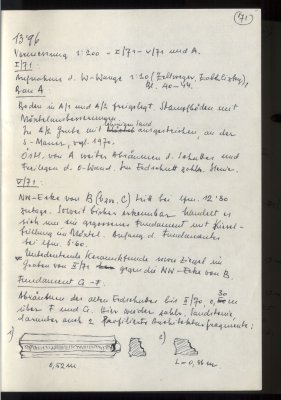 (71)
13.9.
Vermessung 1:200 - I/71 - V/71 und A.
I/71:
Aufnahme d. W-Wange 1:20
Bl. 40-44.
Bau A:
Boden in A/1 und A/2 freigelegt. Stampfböden mit
Mörtelausbesserungen.
In A/2 Grube mit ausgestrichen, an der
S-Mauer, vgl. 1970.
Östl. von A weiter Abräumen d. Schuttes und
Freilegen d. O-Wand. Im Erdschutt zahlr.
V/71:
NW-Ecke von B (bzw. C) tritt bei lfm.
zutage. Soweit bisher erkennbar handelt es
sich um ein gegossenes Fundament mit Kiesel-
füllung in Mörtel. Anfang d. Fundamentes
bei lfm 5.60.
Unbedeutende Keramikfunde sowie Ziegel im
Graben von V/71 gegen die NW-Ecke von B
Fundament G-F.
Abräumen des alten Erdschubes bis II/70, 0,30 m
über F und G. Hier wieder zahlr.
darunter auch 2 Profilierte Architekturfragmente:
1)
2)
0,52 m
L = 0,36 m